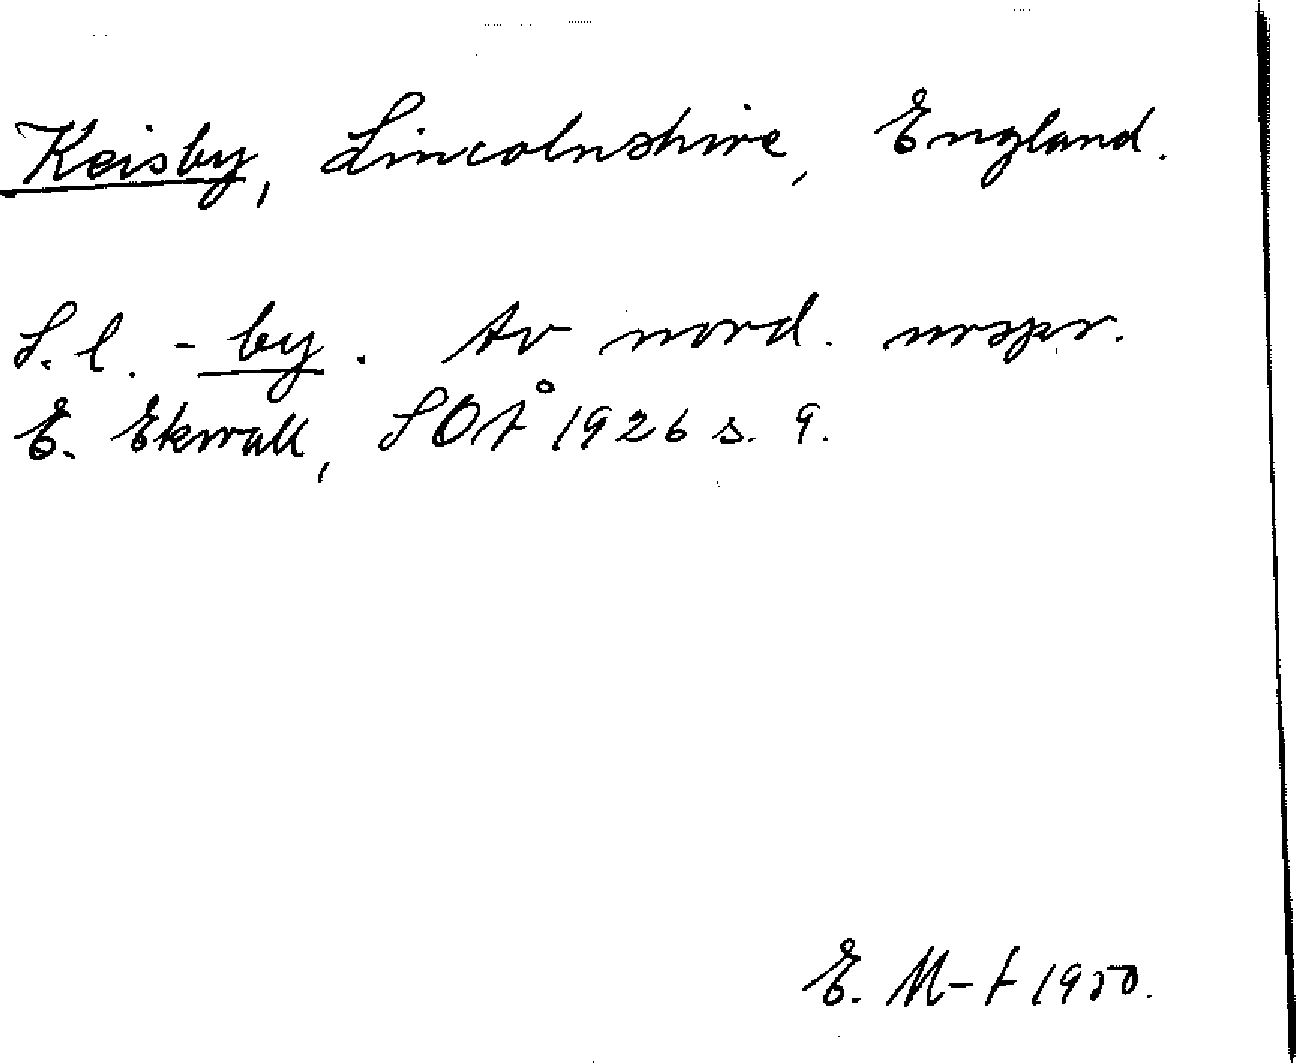 Keisby, Lincolnshire, England.
S.l. -by. Av nord. urspr.
E. Ekwall, SOÅ 1926 s. 9.
E. M-t 1950.